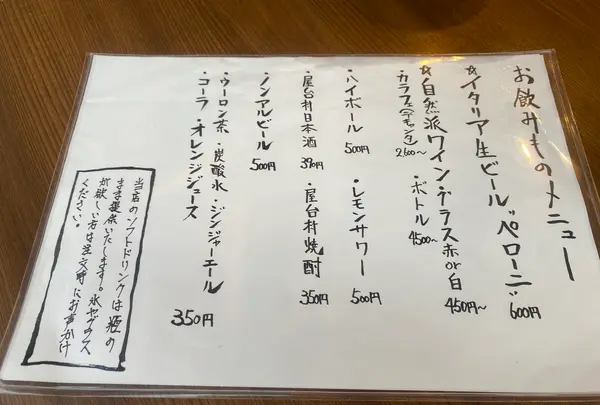 お飲みものメニュー
☆イタリア生ビール"ペローニ" 600円
☆自然派ワイン・グラス赤or白 450円~
・カラフェ(デキャンタ) 2600~ ・ボトル 4500~
・ハイボール 500円 ・レモンサワー 500円
・屋台村日本酒 390円 ・屋台村焼酎 350円
・ノンアルビール 500円
・ウーロン茶・炭酸水・ジンジャーエール
・コーラ・オレンジジュース 350円
当店のソフトドリンクは瓶の
まま提供いたします。氷やグラス
が欲しい方は注文時にお声がけ
ください。